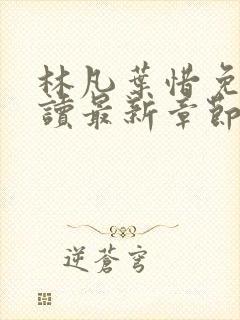 林凡葉惜免
讀最新章節
逆蒼穹